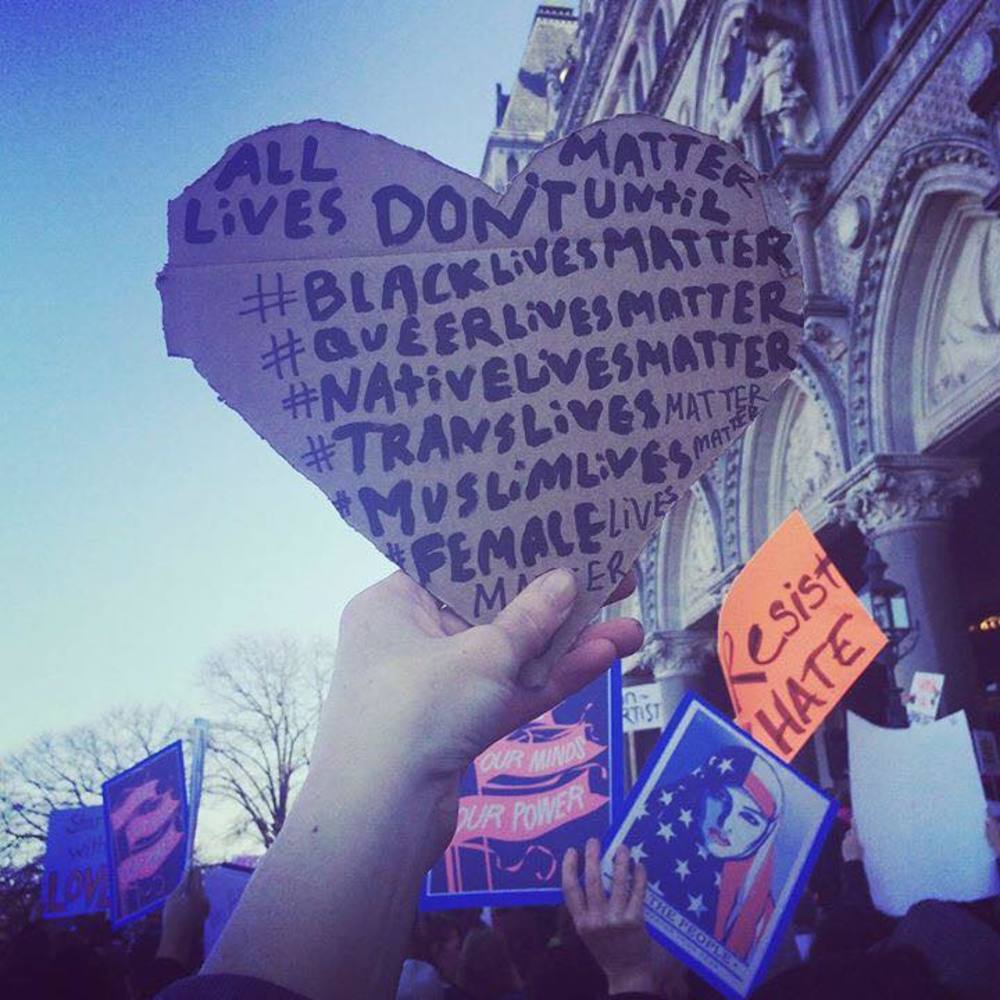 ALL
LIVES DON'T MATTER UNTIL
#BLACKLIVESMATTER
#QUEERLIVESMATTER
#NATIVELIVESMATTER
#TRANSLIVESMATTER
#MUSLIMLIVESMATTER
#FEMALELIVES
MATTER
Resist
HATE
OUR MINDS
OUR POWER
THE PEOPLE
RTIST
with
LOVE